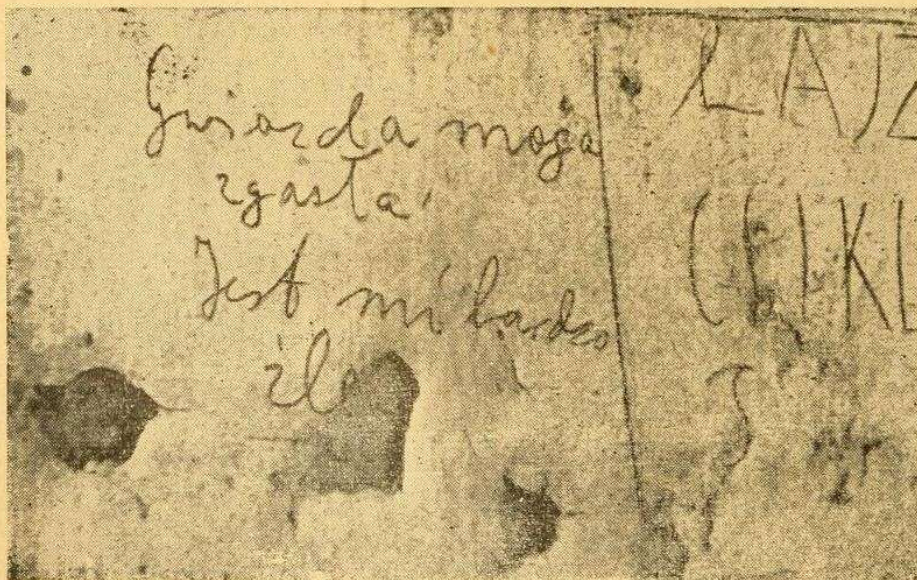 Gwiazda moja
zgasła
Jest mi bardzo
źle
ŁAJZ